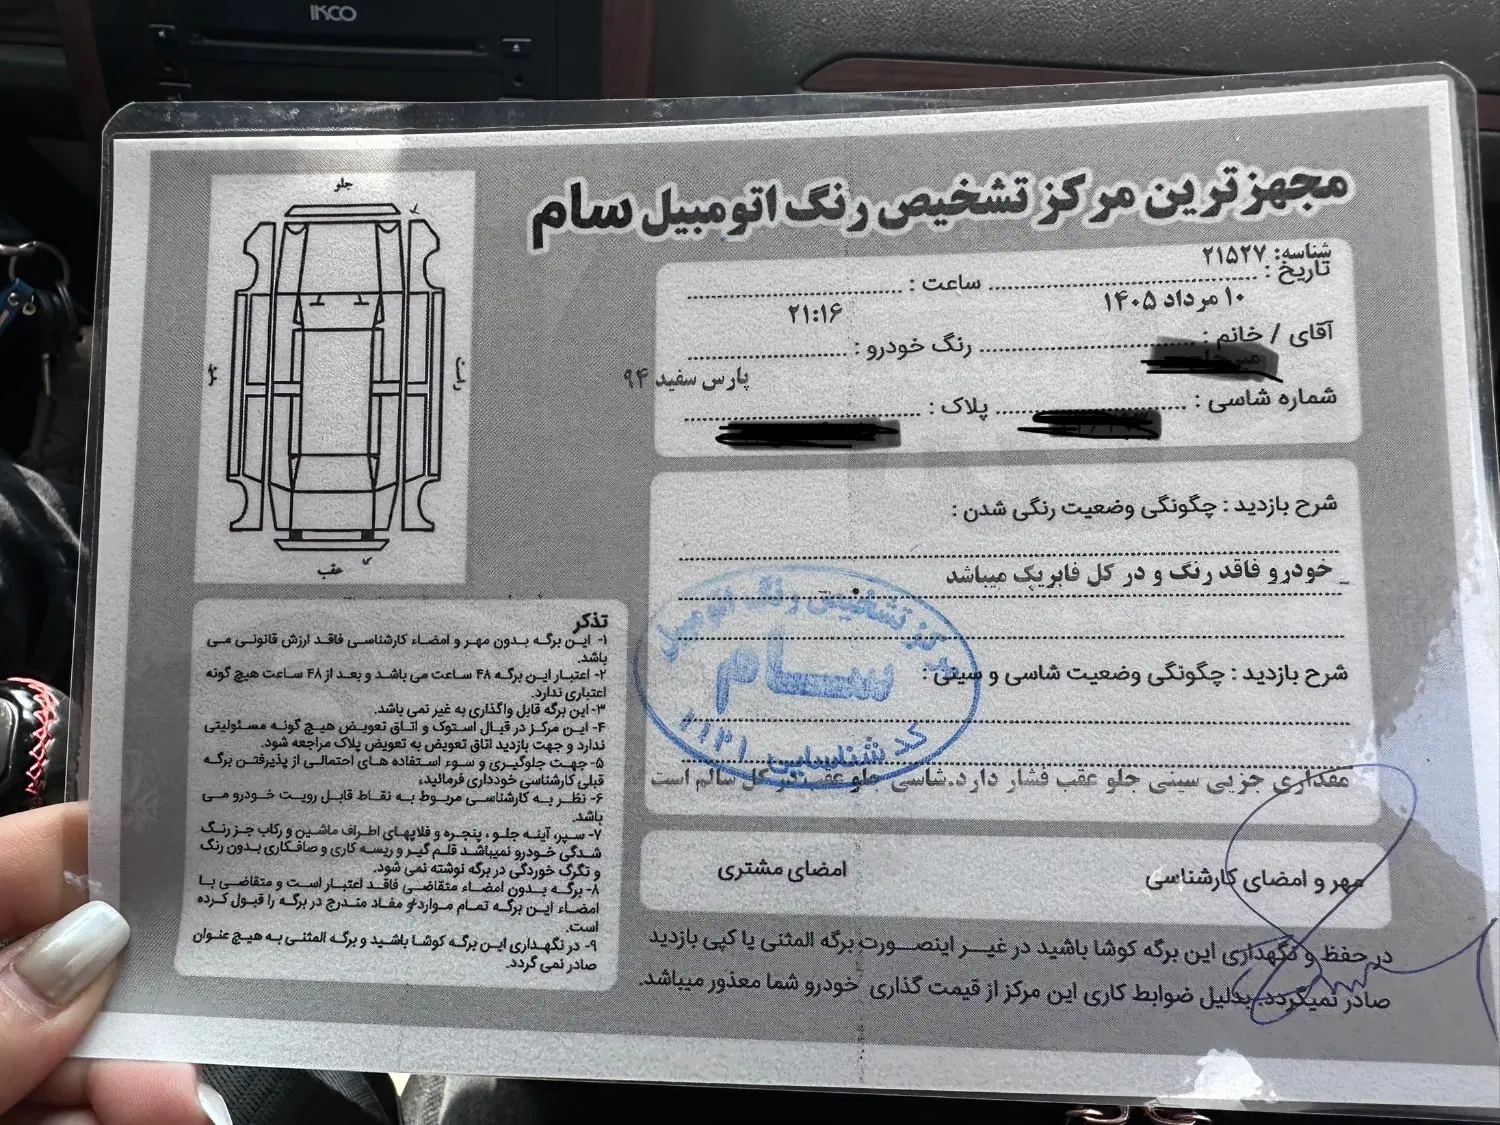 IKCO
مجهزترین مرکز تشخیص رنگ اتومبیل سام
شناسه: ۲۱۵۲۷
تاریخ : ساعت :
۱۰ مرداد ۱۴۰۵ ۲۱:۱۶
آقای / خانم : رنگ خودرو :
پارس سفید ۹۴
شماره شاسی : پلاک :
شرح بازدید : چگونگی وضعیت رنگی شدن :
خودرو فاقد رنگ و در کل فابریک میباشد
شرح بازدید : چگونگی وضعیت شاسی و سینی :
مقداری جزیی سینی جلو عقب فشار دارد.شاسی جلو عقب در کل سالم است
مهر و امضای کارشناسی امضای مشتری
در حفظ و نگهداری این برگه کوشا باشید در غیر اینصورت برگه المثنی یا کپی بازدید
صادر نمیگردد. بدلیل ضوابط کاری این مرکز از قیمت گذاری خودرو شما معذور میباشد.
مرکز تشخیص رنگ اتومبیل
سام
کد شناسایی ۱۱۲۱
جلو
راست
چپ
عقب
تذکر
۱- این برگه بدون مهر و امضاء کارشناسی فاقد ارزش قانونی می
باشد.
۲- اعتبار این برگه ۴۸ ساعت می باشد و بعد از ۴۸ ساعت هیچ گونه
اعتباری ندارد.
۳- این برگه قابل واگذاری به غیر نمی باشد.
۴- این مرکز در قبال استوک و اتاق تعویض هیچ گونه مسئولیتی
ندارد و جهت بازدید اتاق تعویض به تعویض پلاک مراجعه شود.
۵- جهت جلوگیری و سوء استفاده های احتمالی از پذیرفتن برگه
قبلی کارشناسی خودداری فرمائید.
۶- نظر به کارشناسی مربوط به نقاط قابل رویت خودرو می
باشد.
۷- سپر، آینه جلو ، پنجره و قلاپهای اطراف ماشین و رکاب جز رنگ
شدگی خودرو نمیباشد قلم گیر و ریسه کاری و صافکاری بدون رنگ
و تگرگ خوردگی در برگه نوشته نمی شود.
۸- برگه بدون امضاء متقاضی فاقد اعتبار است و متقاضی با
امضاء این برگه تمام موارد و مفاد مندرج در برگه را قبول کرده
است.
۹- در نگهداری این برگه کوشا باشید و برگه المثنی به هیچ عنوان
صادر نمی گردد.